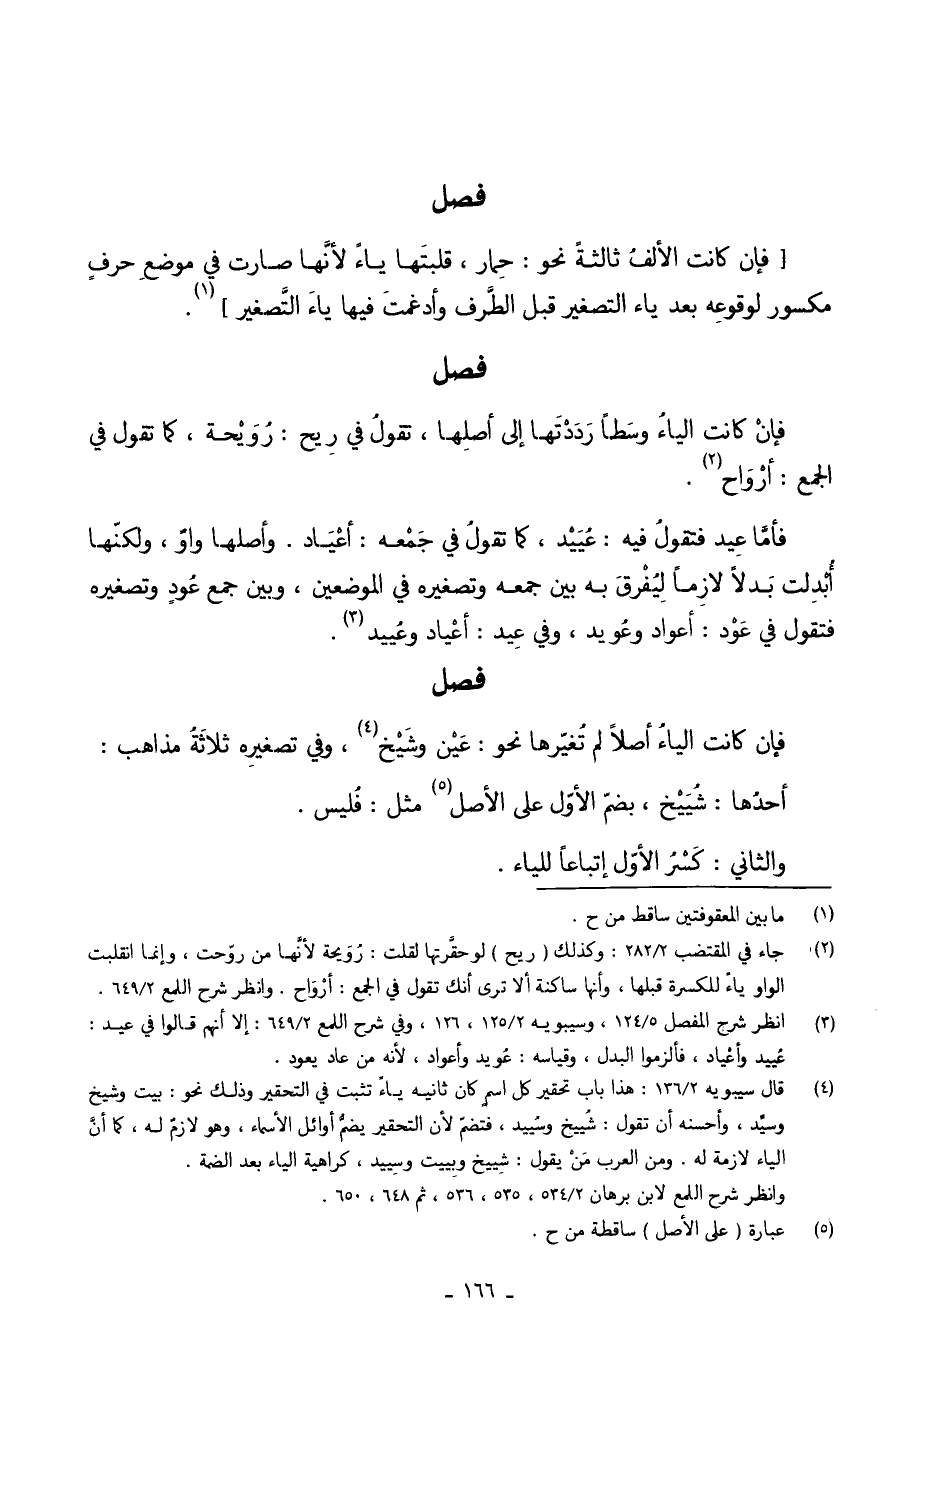 فصل
[ فإن كانت الألفُ ثالثةً نحو : حِمار ، قلبتَها يـاءً لأنَّها صارت في موضعِ حرفٍ
مكسور لوقوعِه بعد ياء التصغير قبل الطَّرف وأدغمتَ فيها ياءَ التَّصغير ] (١) .
فصل
فإنْ كانت الياءُ وسَطاً رَدَدْتَها إلى أصلِها ، تقولُ في رِيح : رُوَيْحة ، كما تقول في
الجمع : أرْوَاح(٢) .
فأمَّا عِيد فتقولُ فيه : عُيَيْد ، كما تقولُ في جَمْعه : أعْيَاد . وأصلها واوٌ ، ولكنّها
أُبْدِلت بَدلاً لازِماً لِيُفْرقَ به بين جمعه وتصغيره في الموضعين ، وبين جمع عُودٍ وتصغيره
فتقول في عَوْد : أعواد وعُويد ، وفي عِيد : أعْياد وعُييد(٣) .
فصل
فإن كانت الياءُ أصلاً لم تُغيّرها نحو : عَيْن وشَيْخ(٤) ، وفي تصغيرِه ثلاثَةُ مذاهب :
أحدُها : شُيَيْخ ، بضمّ الأوّل على الأصل(٥) مثل : فُليس .
والثاني : كَسْرُ الأوّل إتباعاً للياء .
(١) ما بين المعقوفتين ساقط من ح .
(٢) جاء في المقتضب ٢٨٢/٢ : وكذلك ( ريح ) لو حقَّرتها لقلت : رُوَيحة لأنَّها من روّحت ، وإنما انقلبت
الواو ياءً للكسرة قبلها ، وأنها ساكنة ألا ترى أنك تقول في الجمع : أرْوَاح . وانظر شرح اللمع ٦٤٩/٢ .
(٣) انظر شرح المفصل ١٢٤/٥ ، وسيبويه ١٢٥/٢ ، ١٣٦ ، وفي شرح اللمع ٦٤٩/٢ : إلا أنهم قالوا في عيد :
عُييد وأعْياد ، فألزموا البدل ، وقياسه : عُويد وأعواد ، لأنه من عاد يعود .
(٤) قال سيبويه ١٣٦/٢ : هذا باب تحقير كل اسمٍ كان ثانيه ياءً تثبت في التحقير وذلك نحو : بيت وشيخ
وسيِّد ، وأحسنه أن تقول : شُييخ وسُييد ، فتضمّ لأن التحقير يضمُّ أوائل الأسماء ، وهو لازمٌ له ، كما أنَّ
الياء لازمة له . ومن العرب مَنْ يقول : شِييخ وبِييت وسِييد ، كراهية الياء بعد الضمة .
وانظر شرح اللمع لابن برهان ٥٣٤/٢ ، ٥٣٥ ، ٥٣٦ ، ثم ٦٤٨ ، ٦٥٠ .
(٥) عبارة ( على الأصل ) ساقطة من ح .
- ١٦٦ -